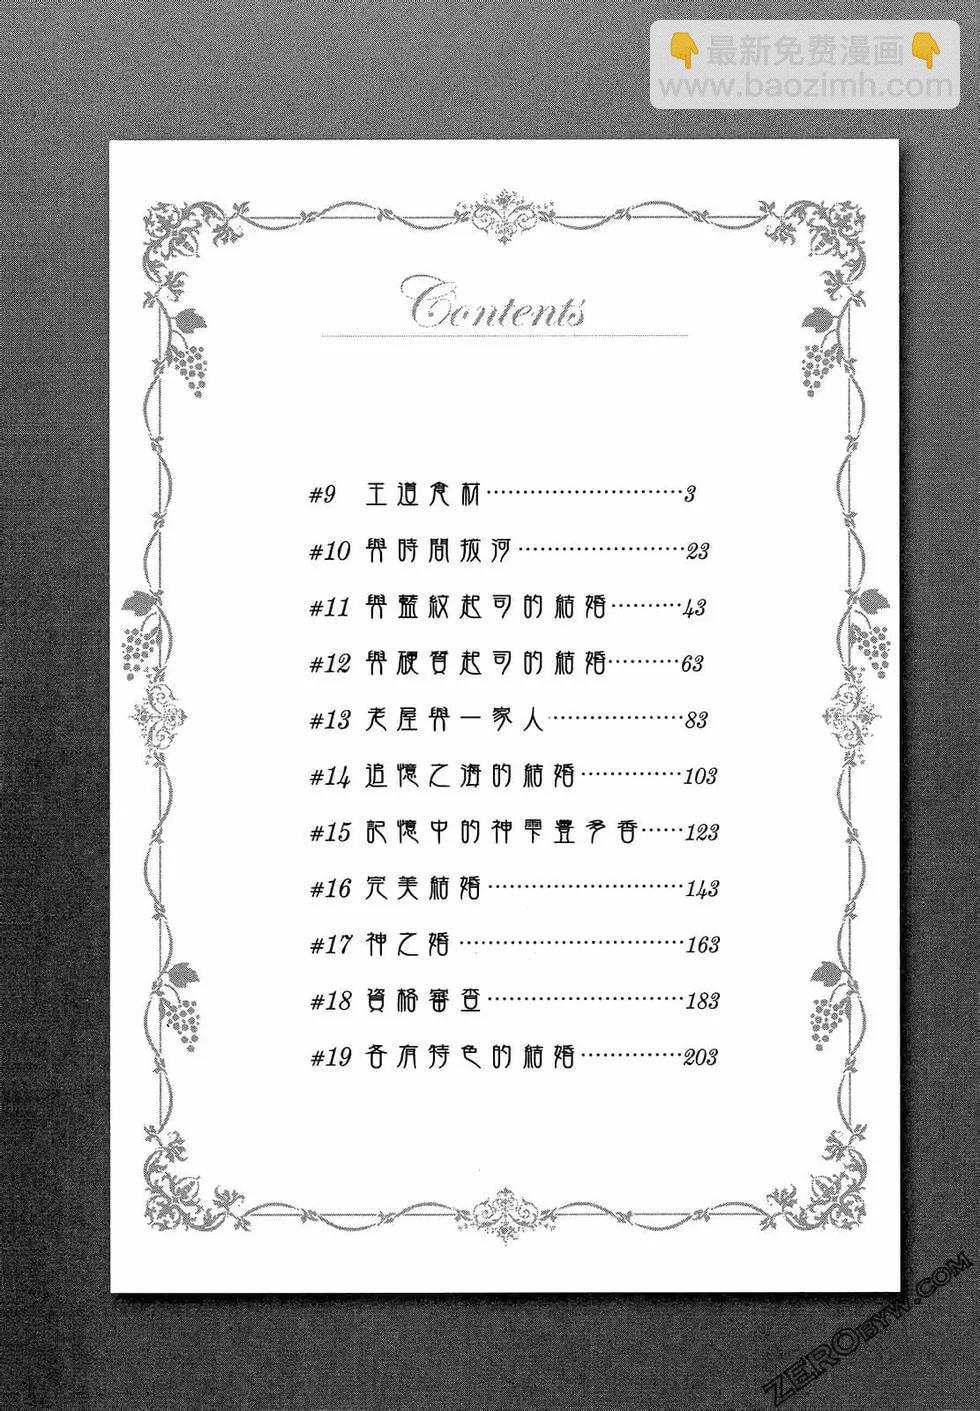 👇最新免费漫画👇
www.baozimh.com
Contents
#9 王道食材……………………3
#10 與時間拔河…………………23
#11 與藍紋起司的結婚………43
#12 與硬質起司的結婚………63
#13 老屋與一家人……………83
#14 追憶之海的結婚…………103
#15 記憶中的神雫豊多香……123
#16 完美結婚……………………143
#17 神之婚………………………163
#18 資格審查……………………183
#19 各有特色的結婚…………203
ZEROBYW.COM